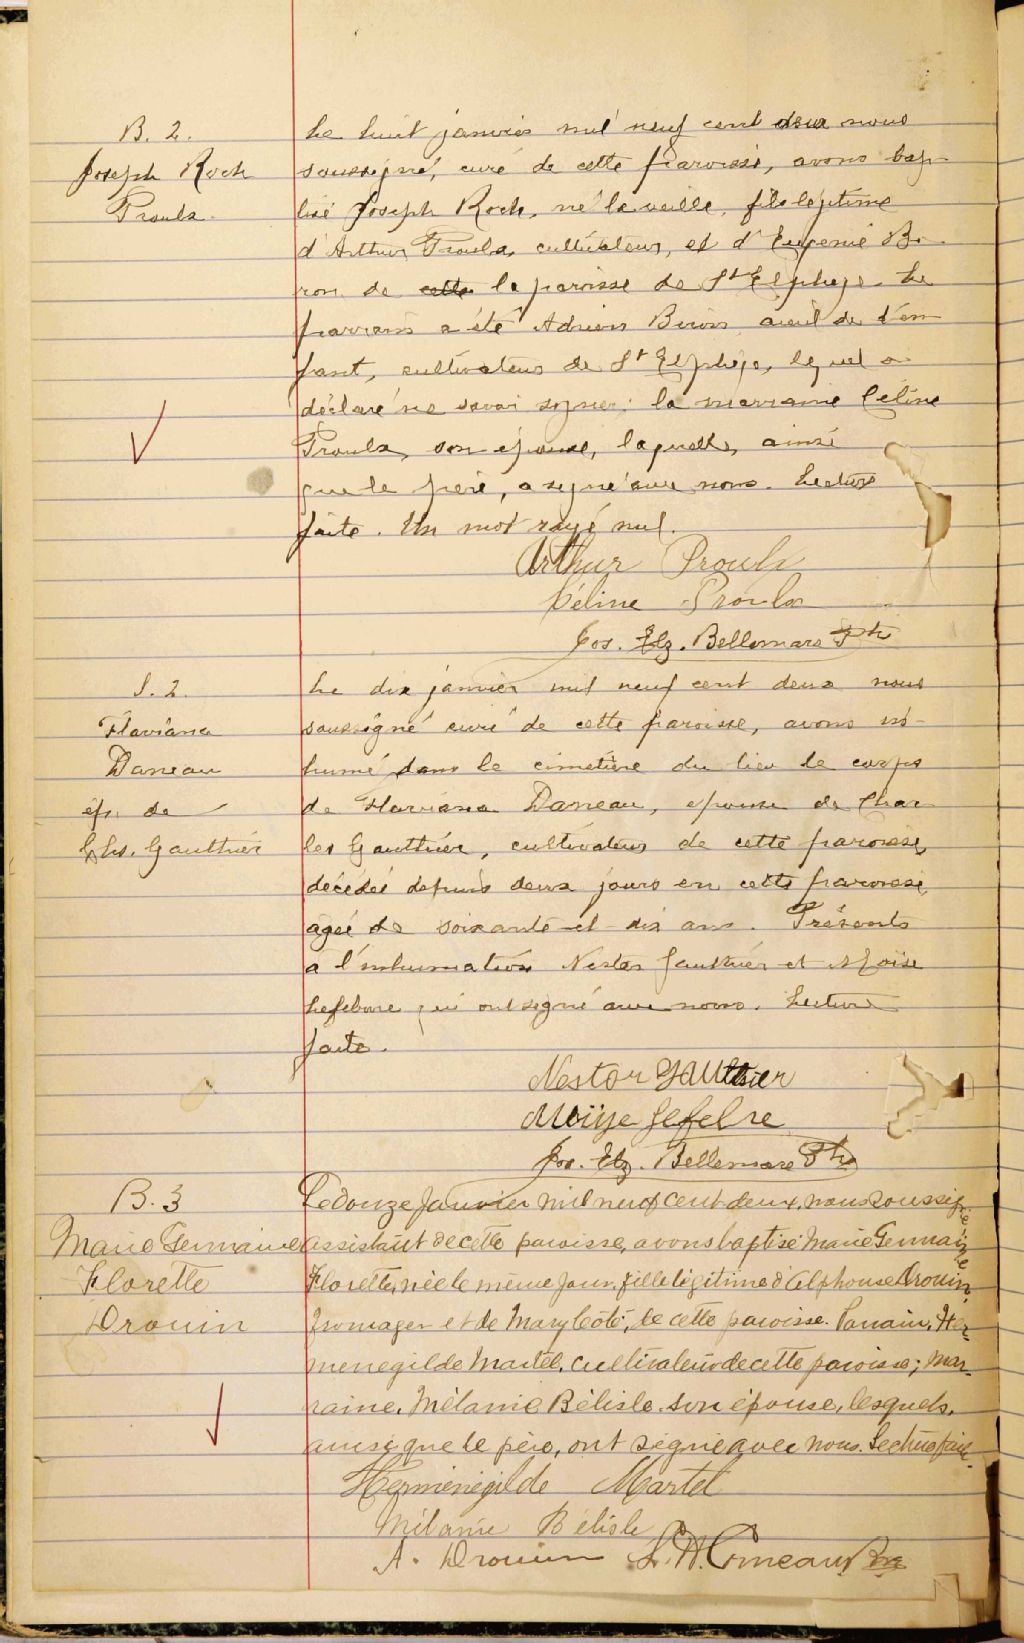 B. 2.
Joseph Roch
Proulx.
Le huit janvier mil neuf cent deux nous
soussigné, curé de cette paroisse, avons bap-
tisé Joseph Roch, né la veille, fils légitime
d'Arthur Proulx, cultivateur, et d'Eugénie Bi-
ron de cette la paroisse de St Elphège. Le
parrain a été Adrien Biron aieul de l'en
fant, cultivateur de St Elphège, lequel a
déclaré ne savoir signer; la marraine Céline
Proulx, son épouse, laquelle, ainsi
que le père, a signé avec nous. Lecture
faite. Un mot rayé nul.
Arthur Proulx
Céline Proulx
Jos. Elz. Bellemare Ptre
S. 2.
Flaviana
Daneau
ép. de
Chs. Gauthier
Le dix janvier mil neuf cent deux nous
soussigné curé de cette paroisse, avons in-
humé dans le cimetière du lieu le corps
de Flaviana Daneau, épouse de Char
les Gauthier, cultivateur de cette paroisse,
décédée depuis deux jours en cette paroisse
agée de soixante-et-dix ans. Présents
à l'inhumation Nestor Gauthier et Moïse
Lefebvre qui ont signé avec nous. Lecture
faite.
Nestor Gauthier
Moïse Lefebre
Jos. Elz. Bellemare Ptre
B. 3
Marie Germaine
Florette
Drouin
Le douze Janvier mil neuf cent deux, nous soussigné
assistant de cette paroisse, avons baptisé Marie Germaine
Florette, née le même jour, fille légitime d'Alphonse Drouin,
fromager et de Mary Côté, de cette paroisse. Parrain, Her-
menegilde Martel, cultivateur de cette paroisse; mar-
raine, Mélanie Bélisle, son épouse, lesquels,
ainsi que le père, ont signé avec nous. Lecture faite.
Herménégilde Martel
Mélanie Bélisle
A. Drouin L. A. Comeau Ptre